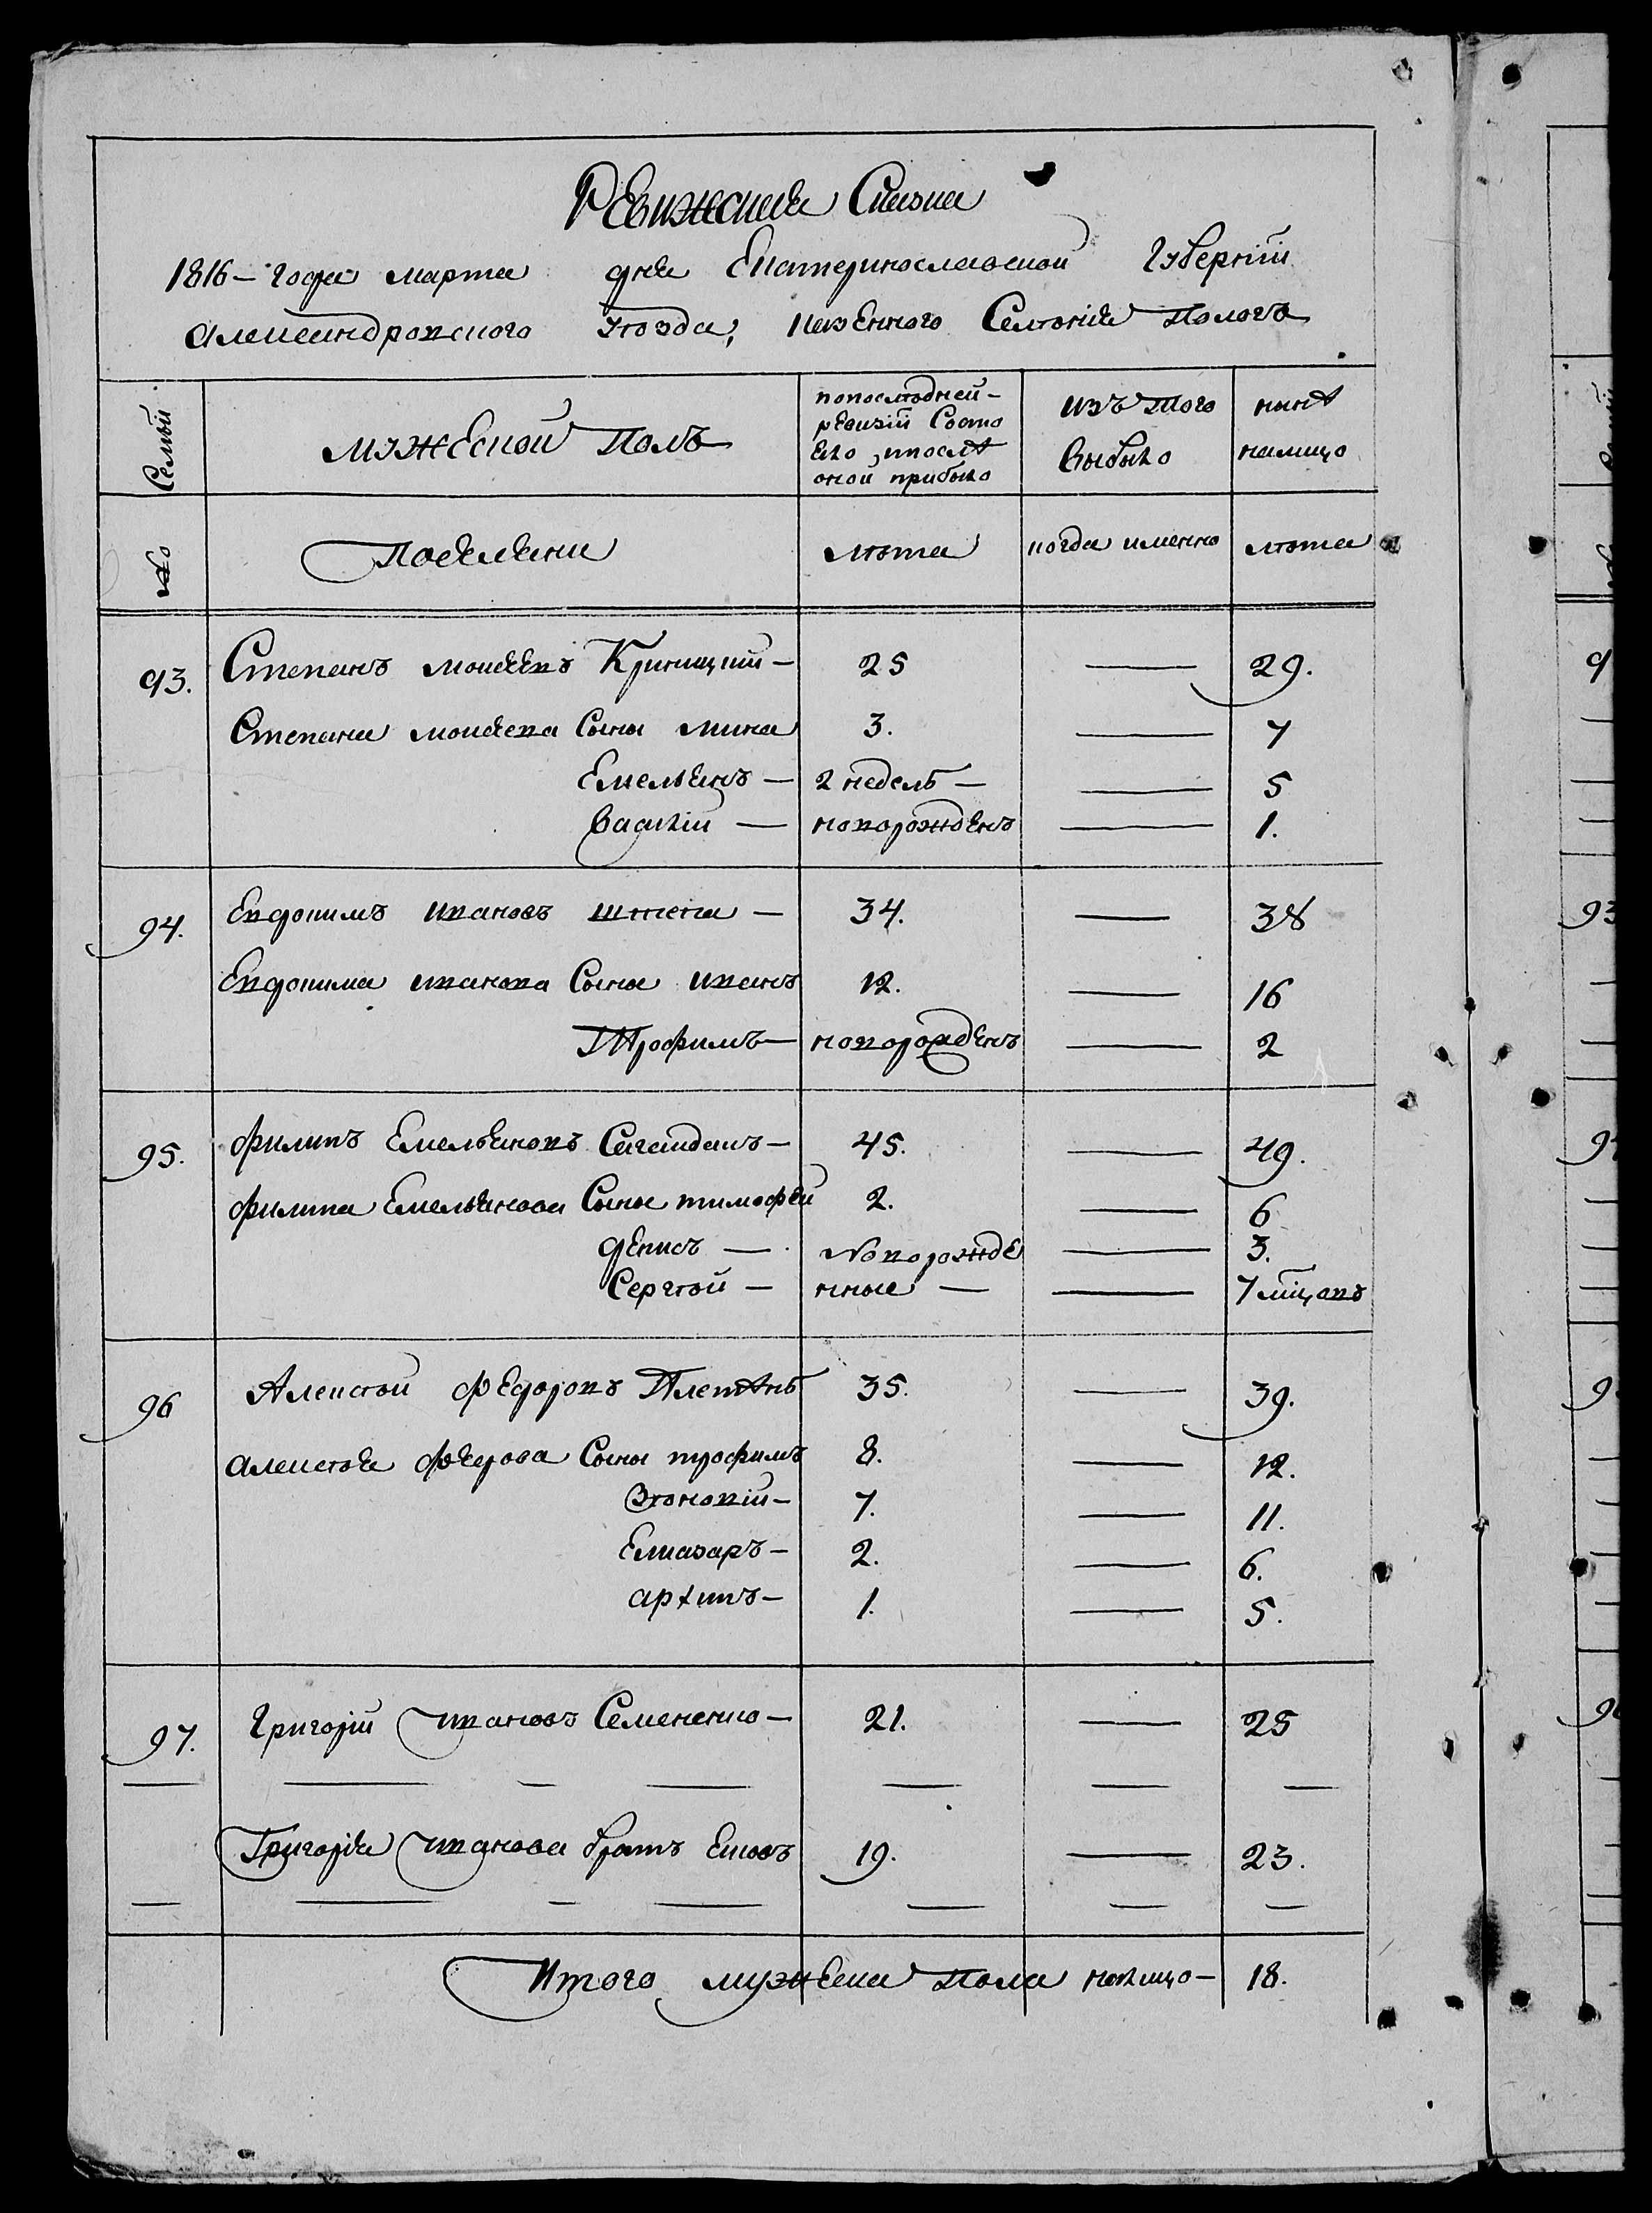 Ревижская Сказка
1816 – года марта дня Екатеринославской Губерніи
Александровского уѣзда, казенного Селѣнія Пологъ
№ Семьи
мужеской Полъ
попослѣдней – ревизіи Состояло, ипослѣ оной прибыло
изъ того выбыло
нынѣ налицо
Поселяни
лѣта
когда именно
лѣта
93. Степанъ моисеевъ Криницкий – 25 — 29.
Степана моисеева Сыны мина 3. — 7
Емельянъ — 2 недель — — 5
Василій — новорожденъ — 1.
94. Евдокимъ ивановъ — 34. — 38
Евдокима иванова Сыны иванъ 12. — 16
Трофимъ — новорожденъ — 2
95. филипъ Емельяновъ Сагайдакъ — 45. — 49.
филипа Емельянова Сыны тимофей 2. — 6
денисъ — новорожде — 3.
Сергѣй — нные — — 7 мцовъ
96 Алексѣй федоровъ Плетѣнь 35. — 39.
алексѣя федорова Сыны трофимъ 8. — 12.
7. — 11.
Елиазаръ — 2. — 6.
архипъ — 1. — 5.
97. Григорій ивановъ Семененко — 21. — 25
Григорія иванова братъ Еиовъ 19. — 23.
Итого мужеска Пола налицо — 18.